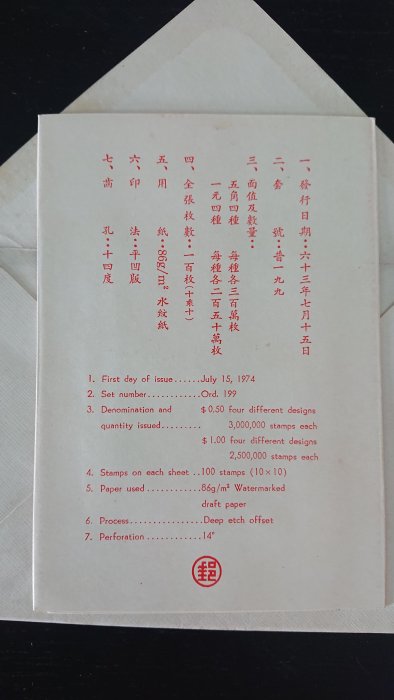 一、發行日期：六十三年七月十五日
二、套　　號：普一九九
三、面值及數量：
五角四種　每種各三百萬枚
一元四種　每種各二百五十萬枚
四、全張枚數：一百枚(十乘十)
五、用　　紙：86g/m² 水紋紙
六、印　　法：平凹版
七、齒　　孔：十四度
1. First day of issue......July 15, 1974
2. Set number............Ord. 199
3. Denomination and $0.50 four different designs
quantity issued......... 3,000,000 stamps each
$1.00 four different designs
2,500,000 stamps each
4. Stamps on each sheet ..100 stamps (10×10)
5. Paper used ............86g/m² Watermarked
draft paper
6. Process................Deep etch offset
7. Perforation ............14°
郵